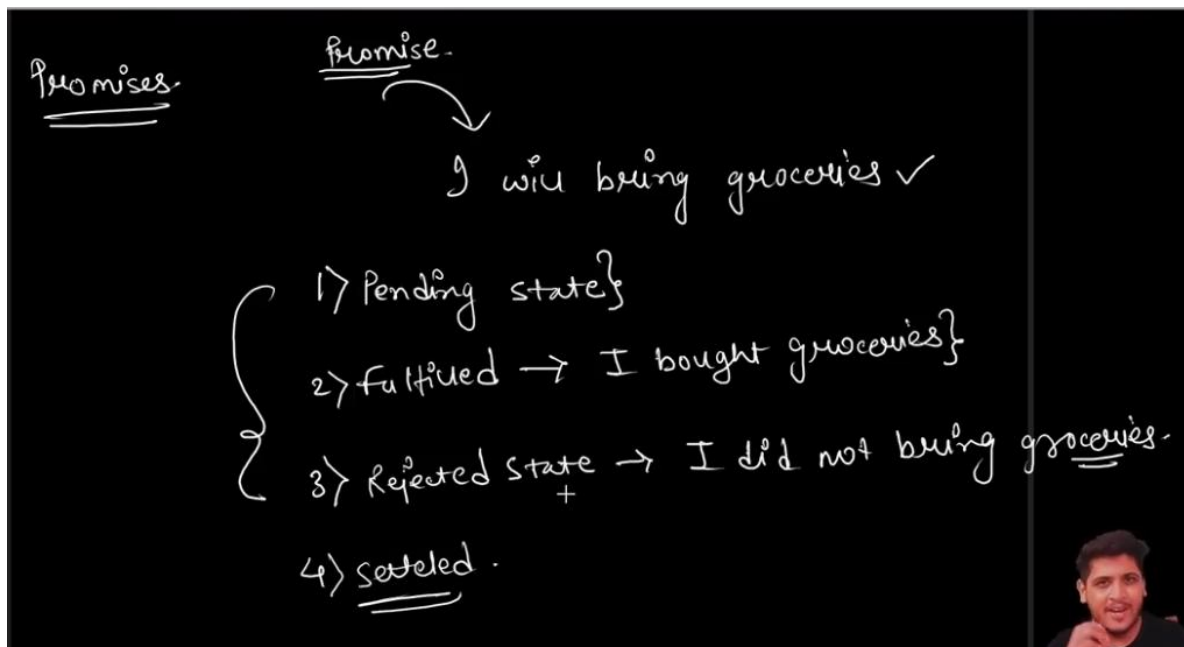 Promises.
Promise.
I will bring groceries ✓
1) Pending state}
2) fulfilled → I bought groceries}
3) Rejected State → I did not bring groceries.
4) setteled.